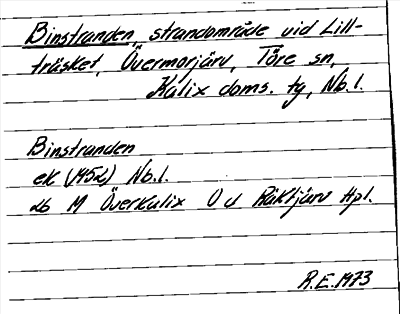 Binstranden, strandområde vid Lill-
träsket, Övermorjärv, Töre sn,
Kalix doms. tg, Nb.l.
Binstranden
ek (1452) Nb.l.
ab M Överkalix O d Räktjärv Hpl.
R.E. 1973